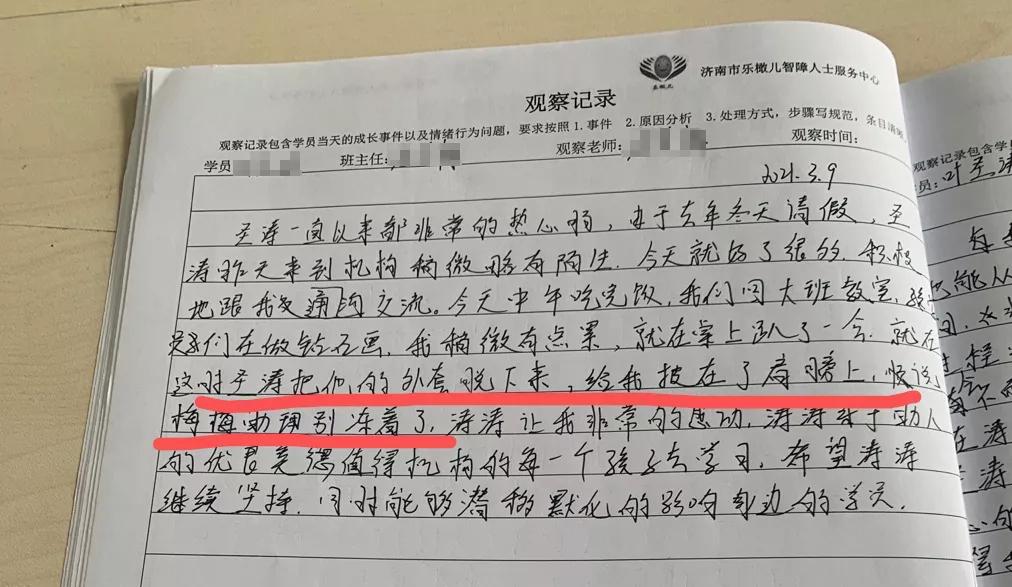 济南市乐橄儿智障人士服务中心
观察记录
观察记录包含学员当天的成长事件以及情绪行为问题，要求按照 1.事件 2.原因分析 3.处理方式，步骤写规范，条目清晰
学员 班主任: 观察老师: 观察时间:
2021.3.9
圣涛一直以来都非常的热心肠，由于去年冬天请假，圣
涛昨天来到机构稍微略有陌生，今天就好了很多，积极
地跟我交通沟交流。今天中午吃完饭，我们回大班教室，
们在做钻石画，我稍微有点累，就在桌上趴了一会，就在
这时圣涛把他的外套脱下来，给我披在了肩膀上，
别冻着了，涛涛让我非常的感动，涛涛乐于助人
的优良美德值得机构的每一个孩子去学习，希望涛涛
继续坚持，同时能够潜移默化的影响身边的学员。
观察记录包含学
员: 叶圣涛